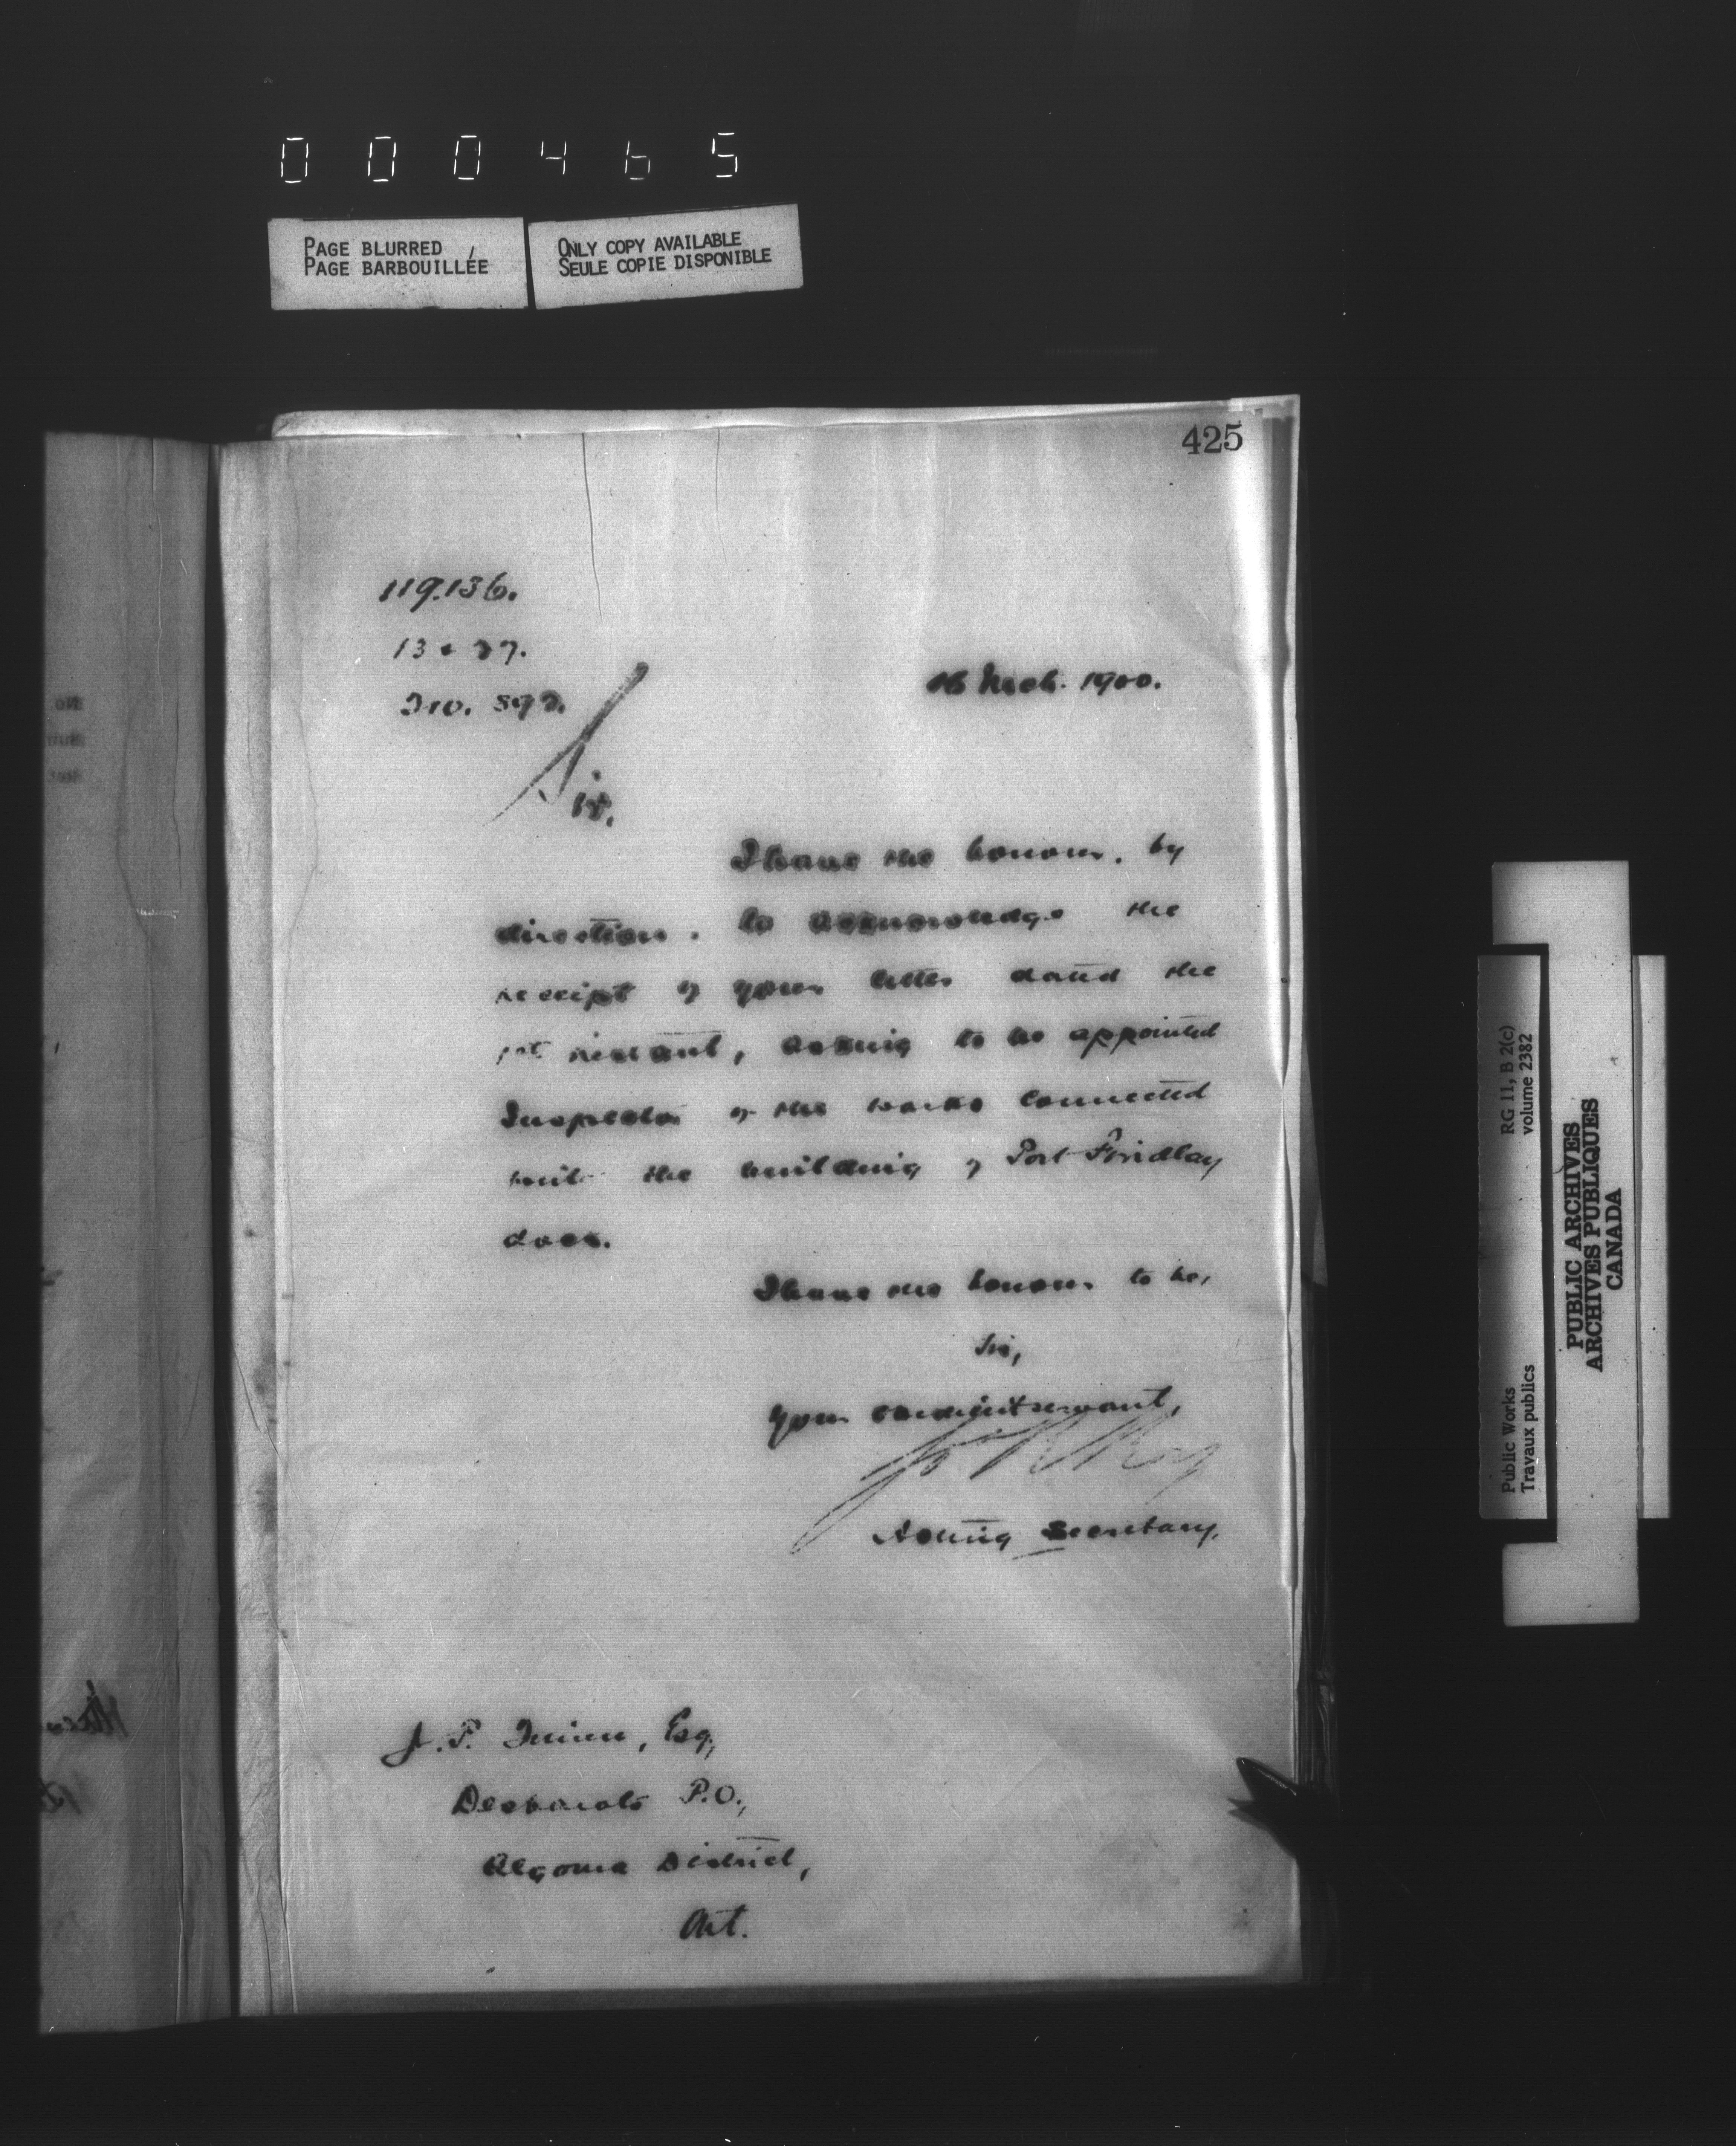 000465
PAGE BLURRED
PAGE BARBOUILLÉE
ONLY COPY AVAILABLE
SEULE COPIE DISPONIBLE
425
119.136.
16 Mch. 1900.
Sir,
I have the honour, by
direction, to acknowledge the
receipt of your letter dated the
instant, asking to be appointed
Inspector of the works connected
with the building of Port Findlay
dock.
I have the honour to be,
Sir,
Your obedient servant,
Roy
Acting Secretary.
J. P. Quinn, Esq.,
Desbarats P.O.,
Algoma District,
Ont.
Public Works
Travaux publics
RG 11, B 2(c)
volume 2382
PUBLIC ARCHIVES
ARCHIVES PUBLIQUES
CANADA